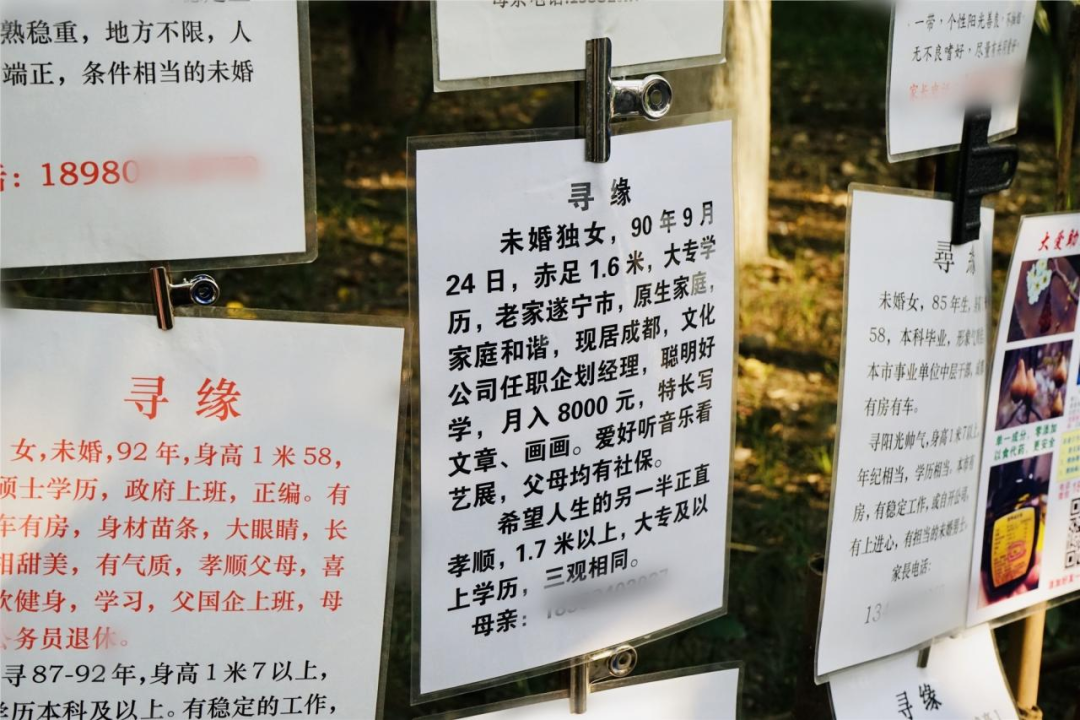 熟稳重，地方不限，人
端正，条件相当的未婚
：18980
寻 缘
女,未婚,92年,身高1米58,
硕士学历，政府上班，正编。有
车有房，身材苗条，大眼睛，长
相甜美，有气质，孝顺父母，喜
欢健身，学习，父国企上班，母
公务员退休。
寻87-92年,身高1米7以上,
学历本科及以上。有稳定的工作,
寻 缘
未婚独女，90年9月
24日，赤足1.6米，大专学
历，老家遂宁市，原生家庭，
家庭和谐，现居成都，文化
公司任职企划经理，聪明好
学，月入8000元，特长写
文章、画画。爱好听音乐看
艺展，父母均有社保。
希望人生的另一半正直
孝顺，1.7米以上，大专及以
上学历，三观相同。
母亲：
一带，个性阳光善良，
无不良嗜好，尽量
家长电话
寻 缘
未婚女，85年生，
58，本科毕业，形象气
本市事业单位中层干部，
有房有车。
寻阳光帅气,身高1米7以上,
年纪相当，学历相当。本市有
房，有稳定工作，或自开公司，
有上进心，有担当的未婚男士。
家長电话：
13
大爱助
单一成分，零添加
以食代药，更安全
寻缘